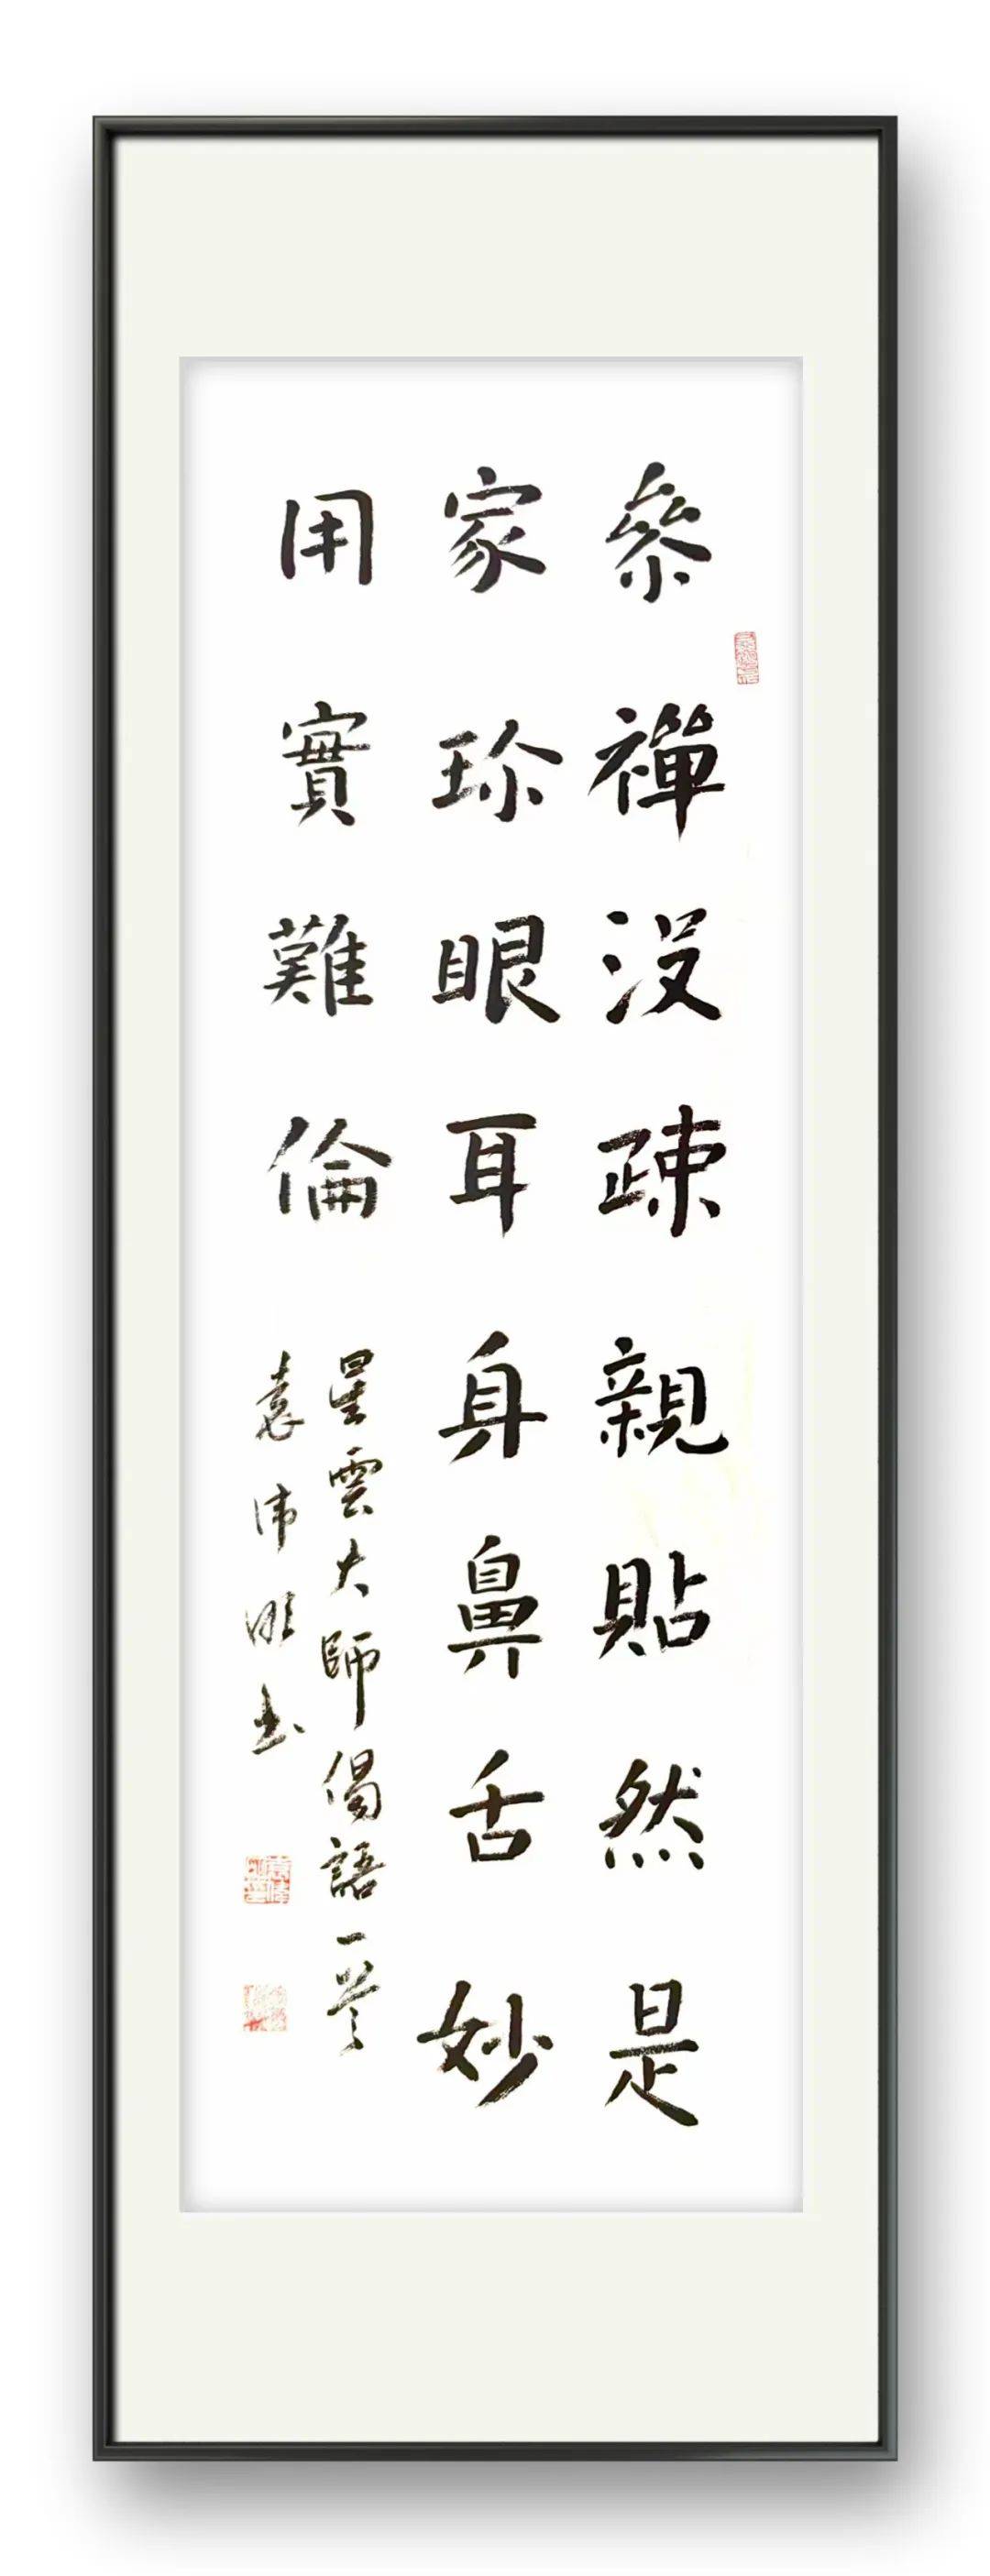 參禪没疎親貼然是
家珍眼耳身鼻舌妙
用實難倫
星雲大師偈語一首
袁偉明書